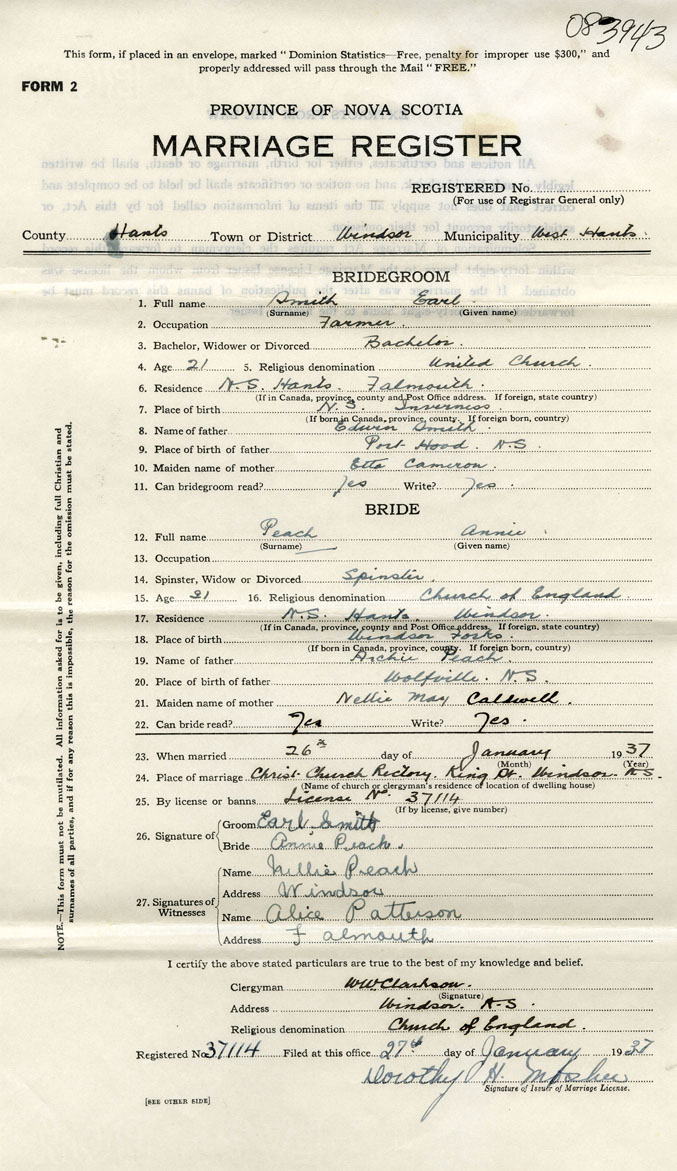 083943
This form, if placed in an envelope, marked "Dominion Statistics—Free, penalty for improper use $300," and
properly addressed will pass through the Mail "FREE."
FORM 2
PROVINCE OF NOVA SCOTIA
MARRIAGE REGISTER
REGISTERED No.
(For use of Registrar General only)
County Hants Town or District Windsor Municipality West Hants
BRIDEGROOM
1. Full name Smith Earl
(Surname) (Given name)
2. Occupation Farmer
3. Bachelor, Widower or Divorced Bachelor
4. Age 21 5. Religious denomination United Church
6. Residence N.S. Hants. Falmouth
(If in Canada, province, county and Post Office address. If foreign, state country)
7. Place of birth N.S. Inverness
(If born in Canada, province, county. If foreign born, country)
8. Name of father Edwin Smith
9. Place of birth of father Port Hood. N.S
10. Maiden name of mother Etta Cameron
11. Can bridegroom read? Yes Write? Yes
BRIDE
12. Full name Peach Annie
(Surname) (Given name)
13. Occupation
14. Spinster, Widow or Divorced Spinster
15. Age 21 16. Religious denomination Church of England
17. Residence N.S. Hants. Windsor
(If in Canada, province, county and Post Office address. If foreign, state country)
18. Place of birth Windsor Forks
(If born in Canada, province, county. If foreign born, country)
19. Name of father Archie Peach
20. Place of birth of father Wolfville. N.S
21. Maiden name of mother Nellie May Caldwell
22. Can bride read? Yes Write? Yes
23. When married 26th day of January 1937
(Month) (Year)
24. Place of marriage Christ Church Rectory, King St. Windsor. N.S.
(Name of church or clergyman's residence or location of dwelling house)
25. By license or banns License No. 37114
(If by license, give number)
26. Signature of
Groom Earl Smith
Bride Annie Peach
27. Signatures of Witnesses
Name Nillie Peach
Address Windsor
Name Alice Patterson
Address Falmouth
I certify the above stated particulars are true to the best of my knowledge and belief.
Clergyman WW Clarkson
(Signature)
Address Windsor. N.S
Religious denomination Church of England
Registered No. 37114 Filed at this office 27th day of January 1937
Dorothy H. Mosher
Signature of Issuer of Marriage License.
[SEE OTHER SIDE]
NOTE.—This form must not be mutilated. All information asked for is to be given, including full Christian and
surnames of all parties, and if for any reason this is impossible, the reason for the omission must be stated.